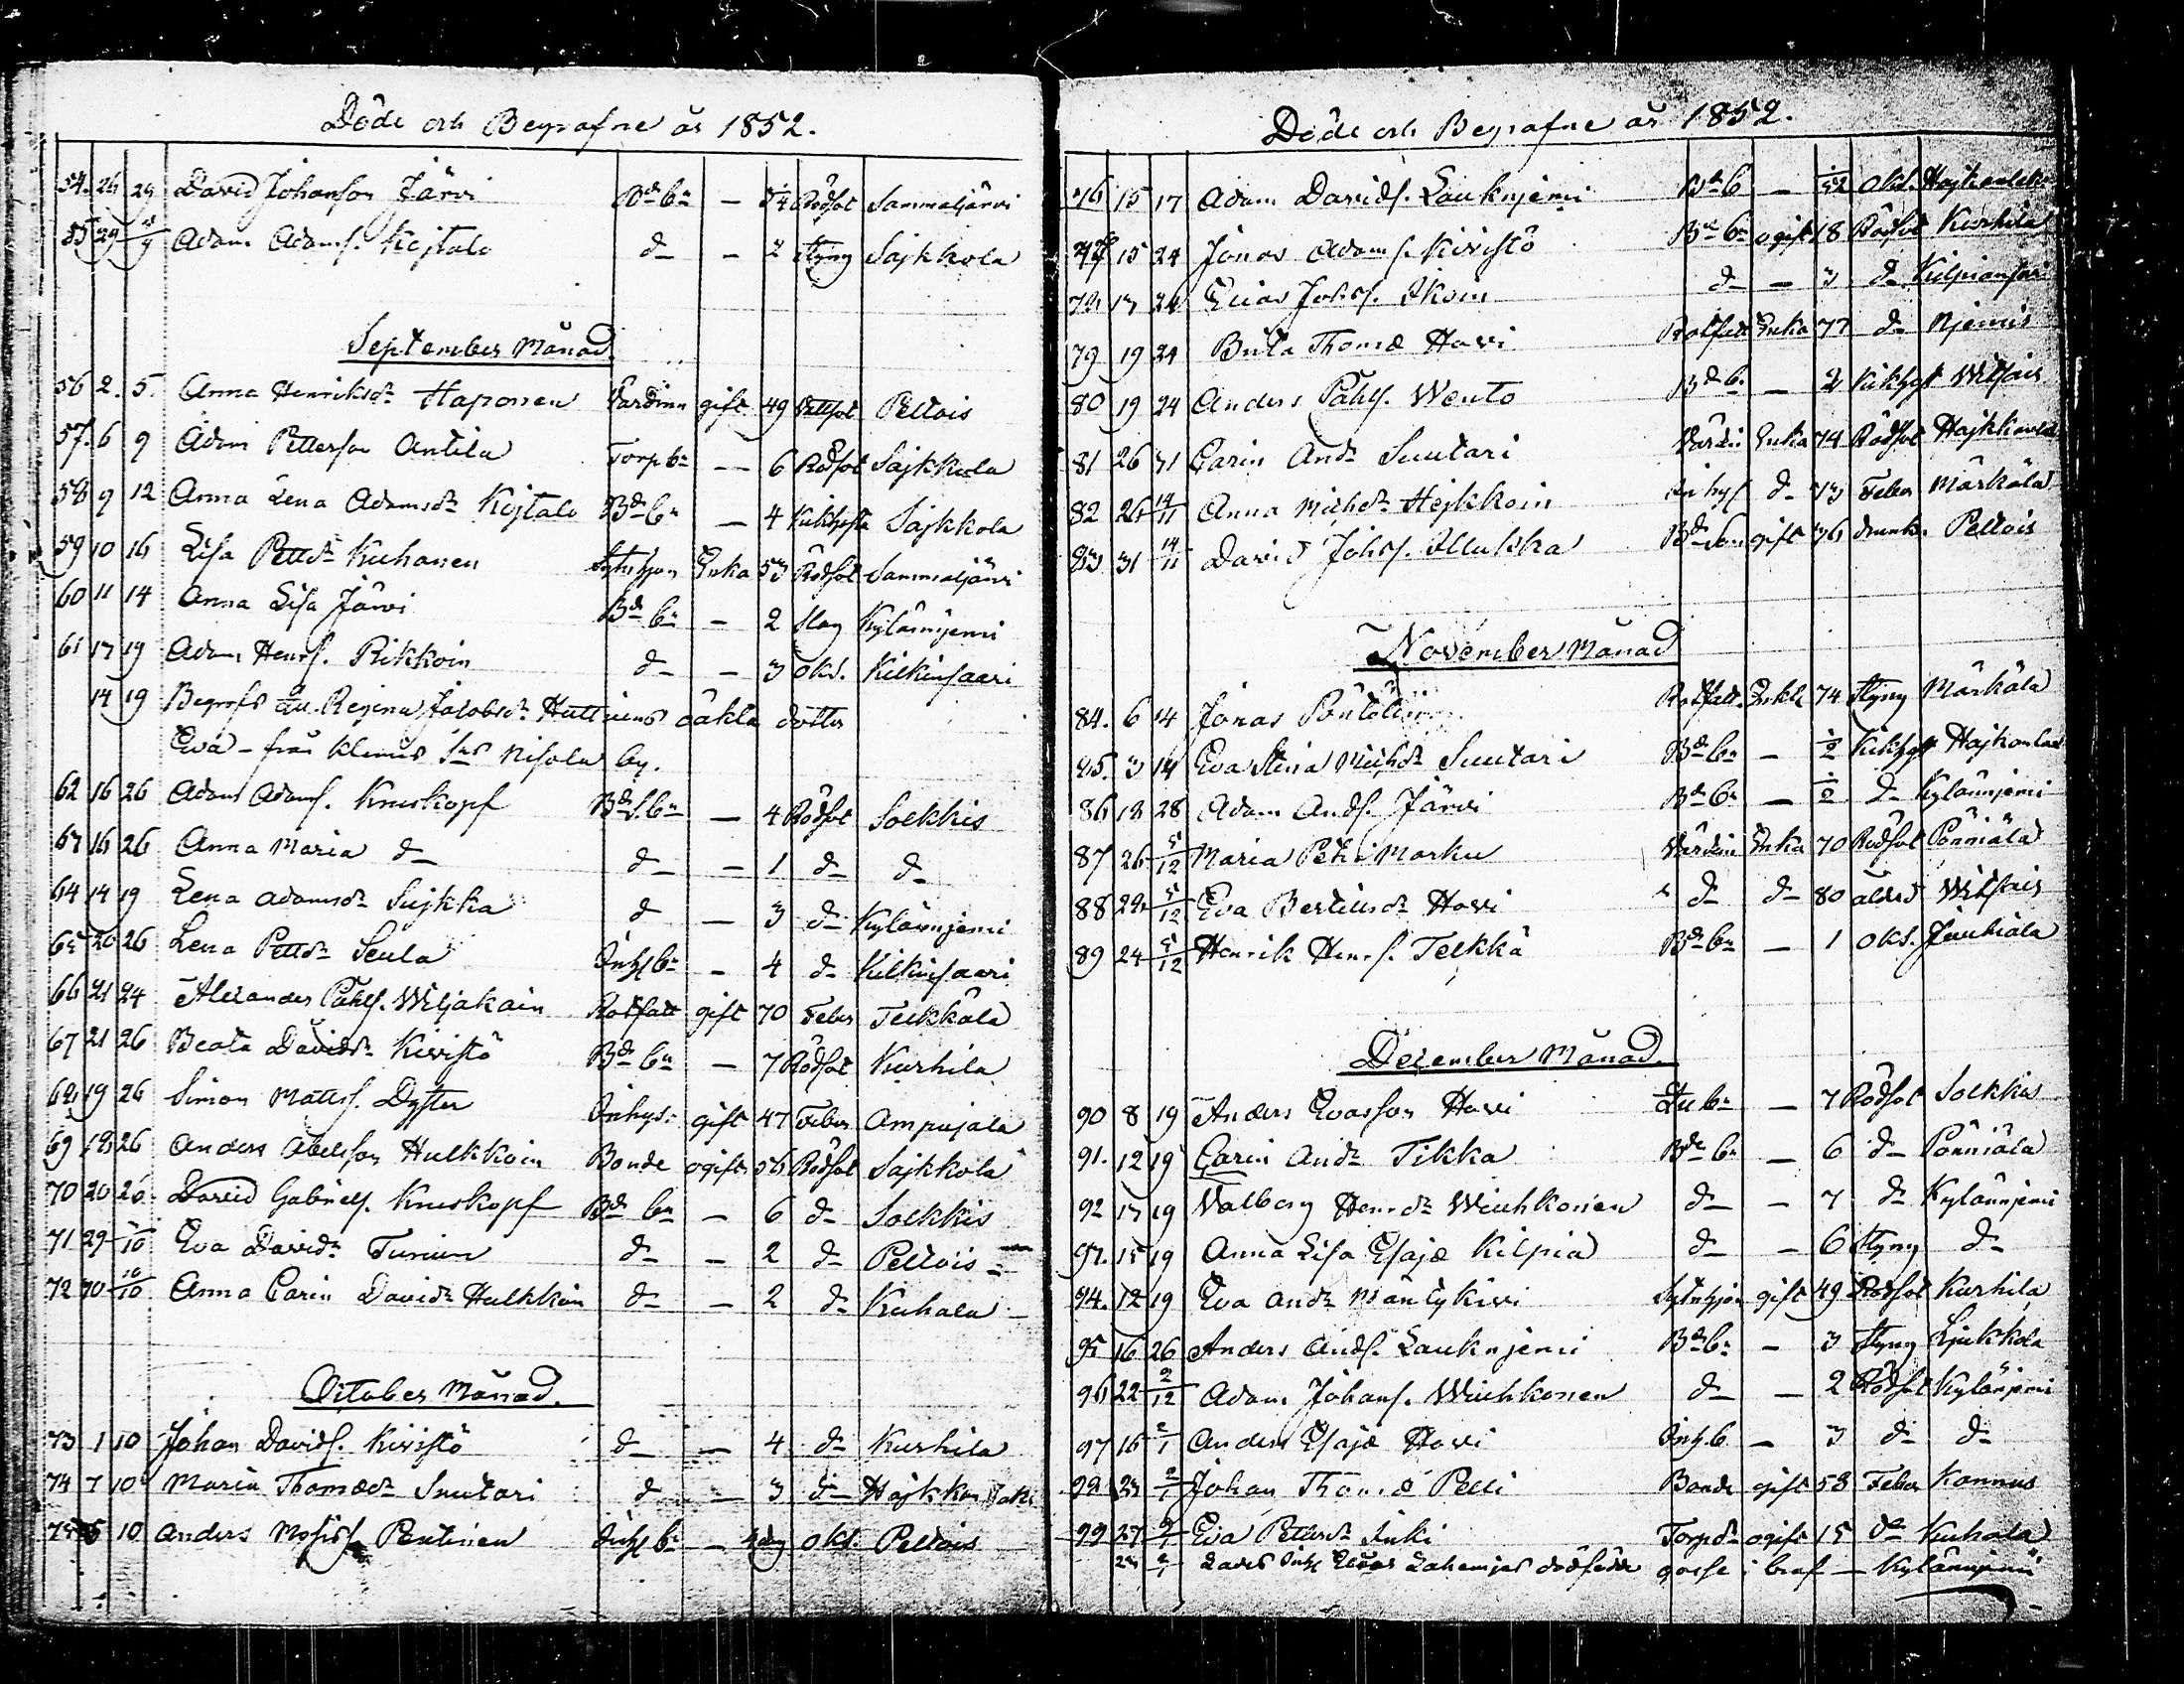 Döde och Begrafne år 1852.
54. 24 29 David Johansson Järvi Bde bn — 3/4 Rödsot Sammaljärvi
55 29 Adam Adamss. Kejtalo d– — 2 Styng Sajkkola
September Månad
56 2. 5. Anna Henriksdr Haponen Värdinn gift 49 Pellois
57. 6 9 Adam Pettersson Antila Torp bn — 6 Rödsot Sajkkola
58 9 12 Anna Lena Adamsdr Kejtalo Bde bn — 4 Kikhosta Sajkkola
59 10 16 Lisa Pettdr Kuhanen Sytnhjon Enka 53 Rödsot Sammaljärvi
60 11 14 Anna Lisa Järvi Bde bn — 2 Slag Kylänniemi
61 17 19 Adam Henrs. Rikkoin d– — 3 oks. Kilkinsaari
14 19 Begrofs Regina Jakobsdr Huttunens oäkta dotter
Eva – från Klemis Nisola by.
62 16 26 Adam Adams. Kruskopf Bde s. bn — 4 Rödsot Solkkis
63 16 26 Anna Maria d– d– — 1 d– d–
64 14 19 Lena Adamsdr Sujkka d — 3 d– Kylänniemi
65 20 26 Lena Pettdr Seula Inhs bn — 4 d– Kilkinsaari
66 21 24 Alexander Påhls. Wiljakain Rotfatt gift 70 Feber Telkkälä
67 21 26 Beata Davidsdr Kivistö Bde bn — 7 Rödsot Kurhila
68 19 26 Simon Mattss. Dyster Inhys: gift 47 Feber Ampujala
69 18 26 Anders Abelsson Hulkkoin Bonde ogift 56 Rödsot Sajkkola
70 20 26 David Gabriels. Kruskopf Bde bn — 6 d– Solkkis
71 29 Eva Davidsdr Turunen d– — 2 d– Pellois
72 30 10/10 Anna Carin Davidsdr Hulkkoin d– — 2 d– Kuhala
October Månad.
73 1 10 Johan Davids. Kivistö d– — 4 d– Kurhila
74 7 10 Maria Thomædr Suutari d — 3 d–
75 5 10 Anders Mosis Pentinen Inhs bn — dag oks. Pellois
Döde och Begrafne år 1852.
76 15 17 Adam Davids. Lauknjemi Bde b — 1/52 oks.
77 15 24 Jonas Adams. Kivistö Bde bn ogift 18 Rödsot Kurhila
78 17 24 Elias Johss. Ikoin d– — 3 d– Kilpiansari
79 19 24 Brita Thomæ Hovi Rotfatt Enka 77 d– Njemis
80 19 24 Anders Påhls. Wento Bde bn — 2 Kikhost
81 26 31 Carin Andr Suutari Värdin Enka 74 Rödsot
82 26 14/11 Anna Michsdr Hejkkoin Inhys d– 73 Feber Märkälä
83 31 14/11 David Johss. Illukka Bde son gift 36 drunk. Pellois
November Månad
84. 6 14 Jonas Rotfatt. Enkl. 74 Styng Märkälä
85. 3 14 Eva Stina Michsdr Suutari Bde bn — 1/2 Kikhost
86 18 28 Adam Ands. Järvi Bde bn — 1/2 d– Kylänniemi
87 26 5/12 Maria Petri Marku Värdin Enka 70 Rödsot Pönniälä
88 29 5/12 Eva Bertilsdr Hovi d– d– 80 ålderd
89 24 5/12 Henrik Henrs. Telkkä Bde bn — 1 oks.
December Månad.
90 8 19 Anders Evasson Hovi bn — 7 Rödsot Solkkis
91. 12 19 Carin Andr Tikka Bde bn — 6 d– Pönniälä
92 17 19 Valborg Henrdr Wiuhkonen d– — 7 d– Kylänniemi
93. 15 19 Anna Lisa Esajæ Kilpiä d– — 6 Styng d–
94. 12 19 Eva Andr Mäntykivi Sytnhjon gift 49 Rödsot Kurhila
95 16 26 Anders Ands. Lauknjemi Bde bn — 3 Styng Ljukkola
96 22 2/12 Adam Johans. Wiuhkonen d– — 2 Rödsot Kylänniemi
97 16 2/1 Anders Esajæ Hovi Inh. b — 3 d– d–
98 23 2/1 Johan Thomæ Pelli Bonde gift 58 Feber Kannus
99 27 2/1 Eva Pettersdr Inki Torpdr ogift 15 do Kuhala
dödfödde gosse i Kylänniemi